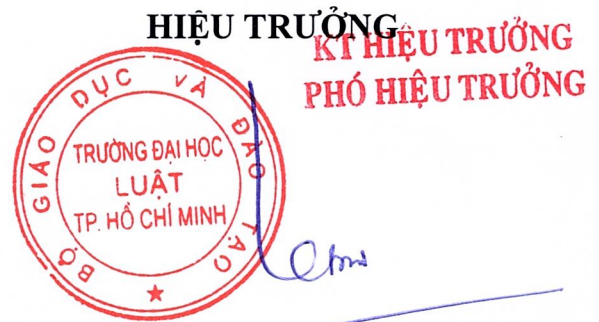 HIỆU TRƯỞNG
KT HIỆU TRƯỞNG
PHÓ HIỆU TRƯỞNG
BỘ GIÁO DỤC VÀ ĐÀO TẠO
TRƯỜNG ĐẠI HỌC
LUẬT
TP. HỒ CHÍ MINH